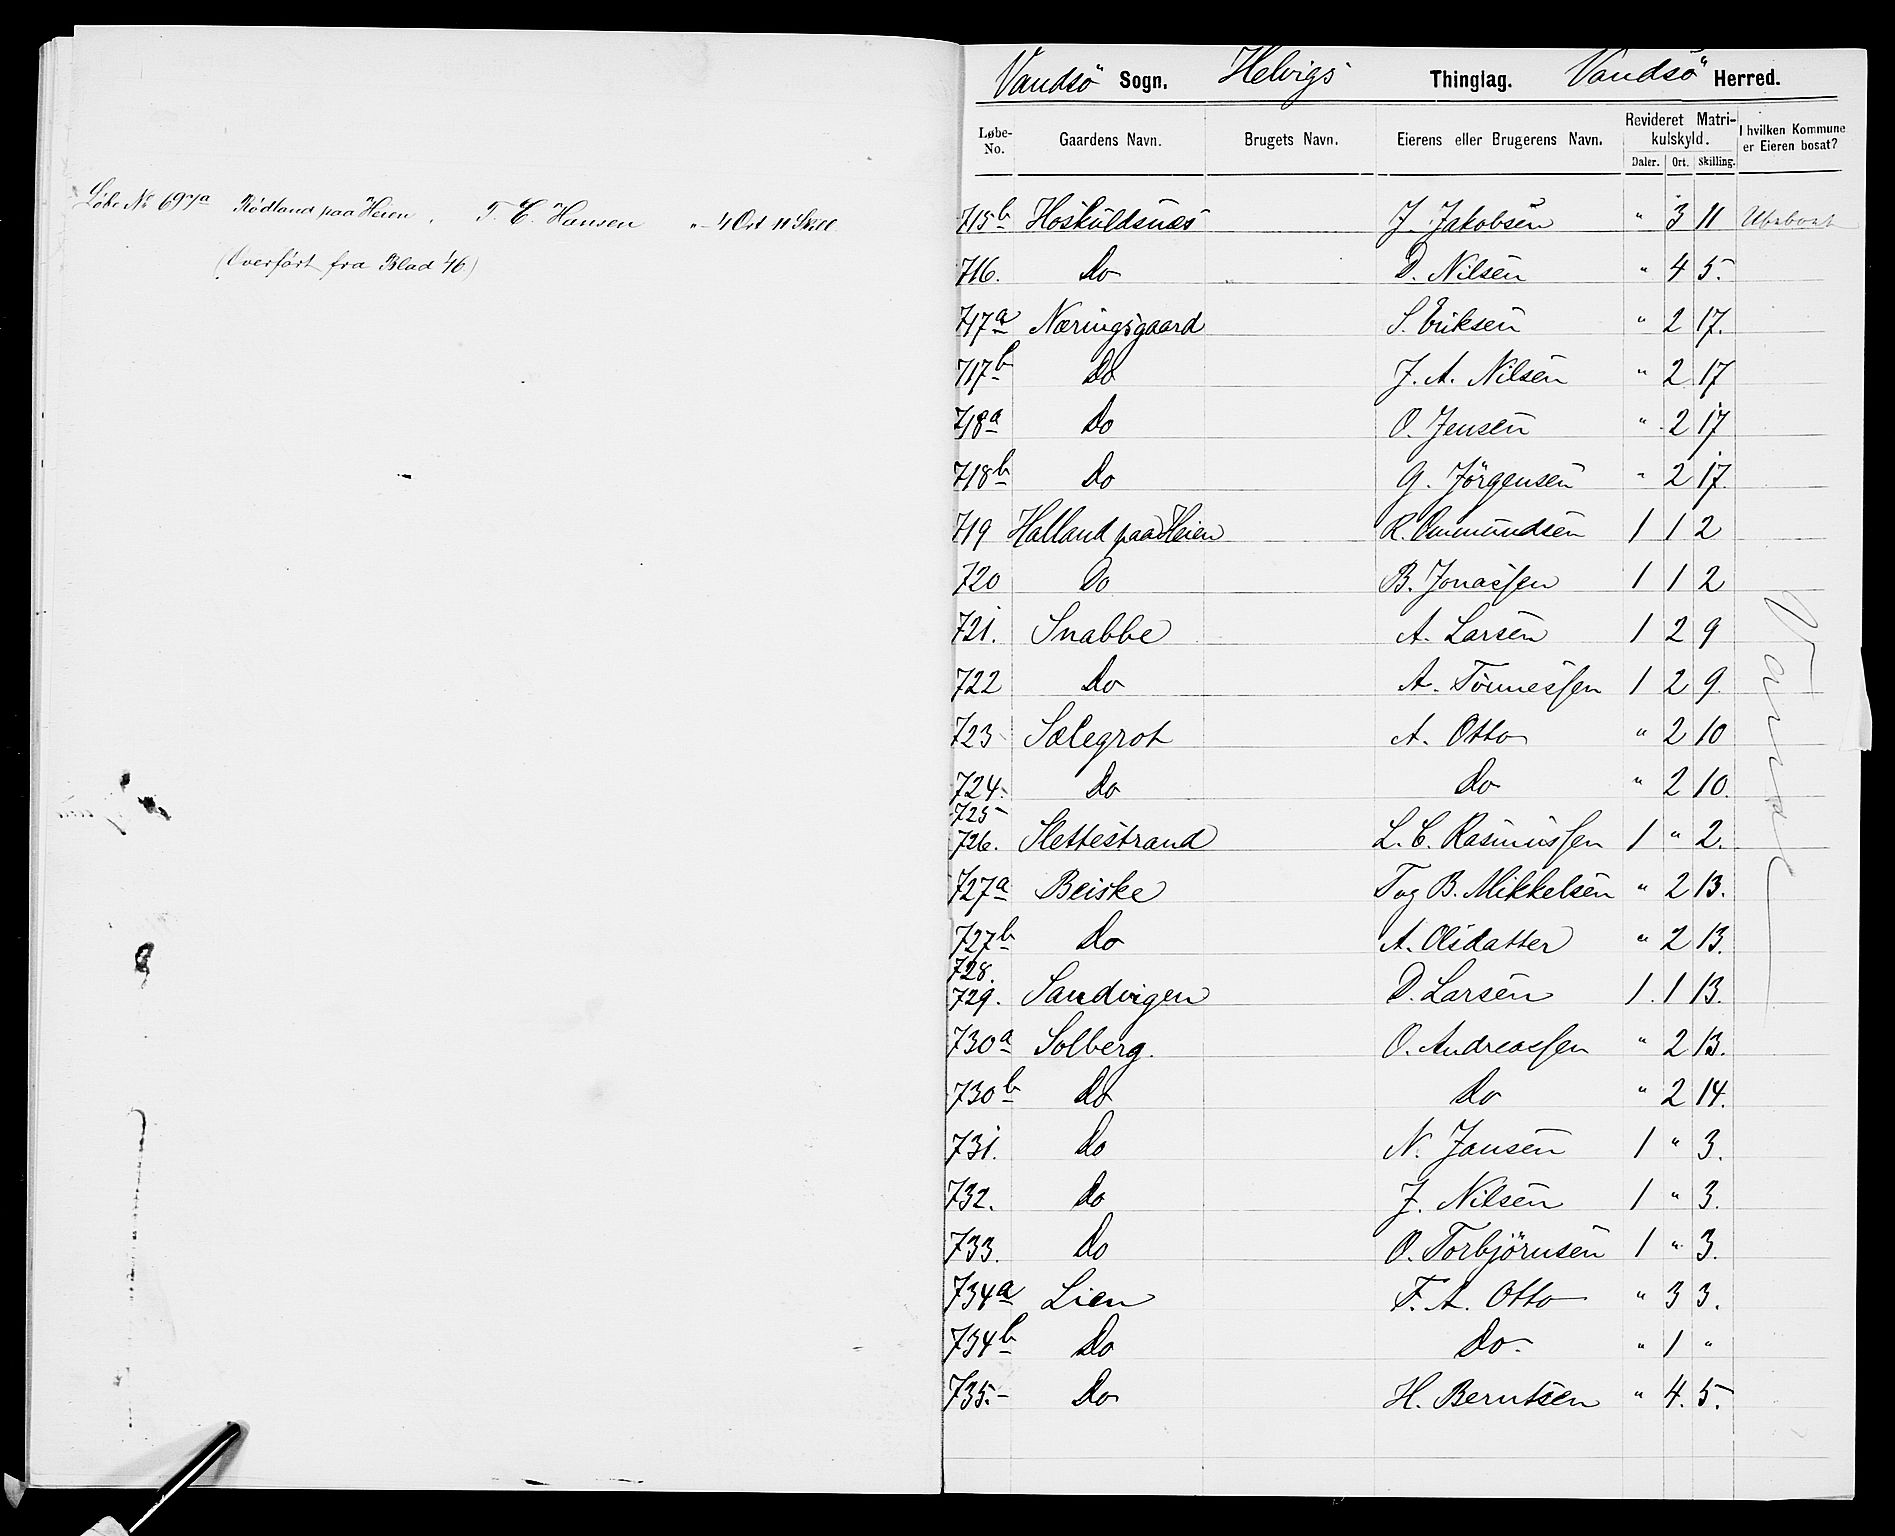 Løbe No 697a Rödland paa Heien. T. C. Hansen " - 4 Ort 11 Skill
(Overført fra Blad 46)
Vandsö Sogn. Helvigs Thinglag. Vandsö Herred.
Løbe-No. Gaardens Navn. Brugets Navn. Eierens eller Brugerens Navn. Revideret Matrikulskyld. I hvilken Kommune er Eieren bosat?
Daler. Ort. Skilling.
715b Höskuldsnæs J. Jakobsen " 3 11 Ubeboet
716. Do D. Nilsen " 4 5.
717a Næringsgaard S. Eriksen " 2 17.
717b Do J. A. Nilsen " 2 17
718a Do O. Jensen " 2 17
718b Do G. Jörgensen " 2 17.
719 Halland paa Heien R. Ommundsen 1 1 2
720 Do B. Jonassen 1 1 2
721. Snabbe A. Larsen 1 2 9
722 Do A. Tönnessen 1 2 9.
723 Sælegrot A. Otto " 2 10
724. Do Do " 2 10.
725
726. Slettestrand L. C. Rasmussen 1 " 2.
727a Beiske T og B. Mikkelsen " 2 13.
727b Do A. Olsdatter " 2 13.
728.
729. Sandvigen D. Larsen 1. 1 13.
730a Solberg. O. Andreassen " 2 13.
730b Do Do " 2 14.
731. Do N. Jansen 1 " 3.
732. Do J. Nilsen 1 " 3.
733. Do O. Torbjörnsen 1 " 3.
734a Lien F. A. Otto " 3 3.
734b Do Do. " 1 "
735. Do H. Berntsen " 4. 5.
Vanse